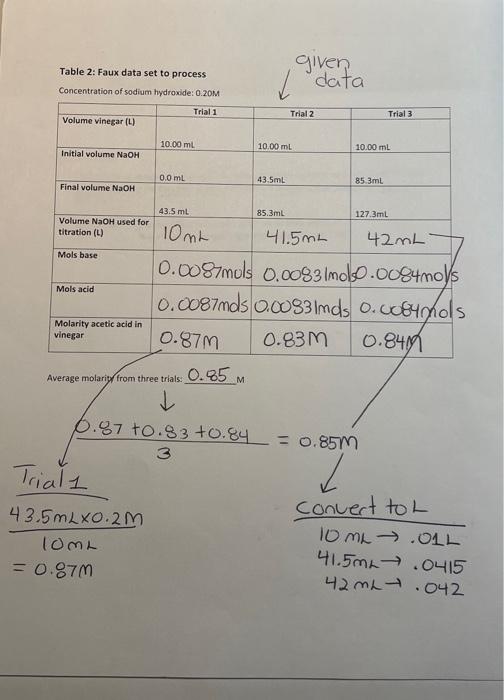 given
data
Table 2: Faux data set to process
Concentration of sodium hydroxide: 0.20M
Trial 1 Trial 2 Trial 3
Volume vinegar (L) 10.00 mL 10.00 mL 10.00 mL
Initial volume NaOH 0.0 mL 43.5mL 85.3mL
Final volume NaOH 43.5 mL 85.3mL 127.3mL
Volume NaOH used for
titration (L) 10mL 41.5mL 42mL
Mols base 0.0087mols 0.0083mols 0.0084mols
Mols acid 0.0087mols 0.0083mols 0.0084mols
Molarity acetic acid in
vinegar 0.87M 0.83M 0.84M
Average molarity from three trials: 0.85 M
0.87 +0.83 +0.84 = 0.85M
3
Trial 1
43.5mL×0.2M
10mL
= 0.87M
Convert to L
10 mL → .01L
41.5mL → .0415
42 mL → .042